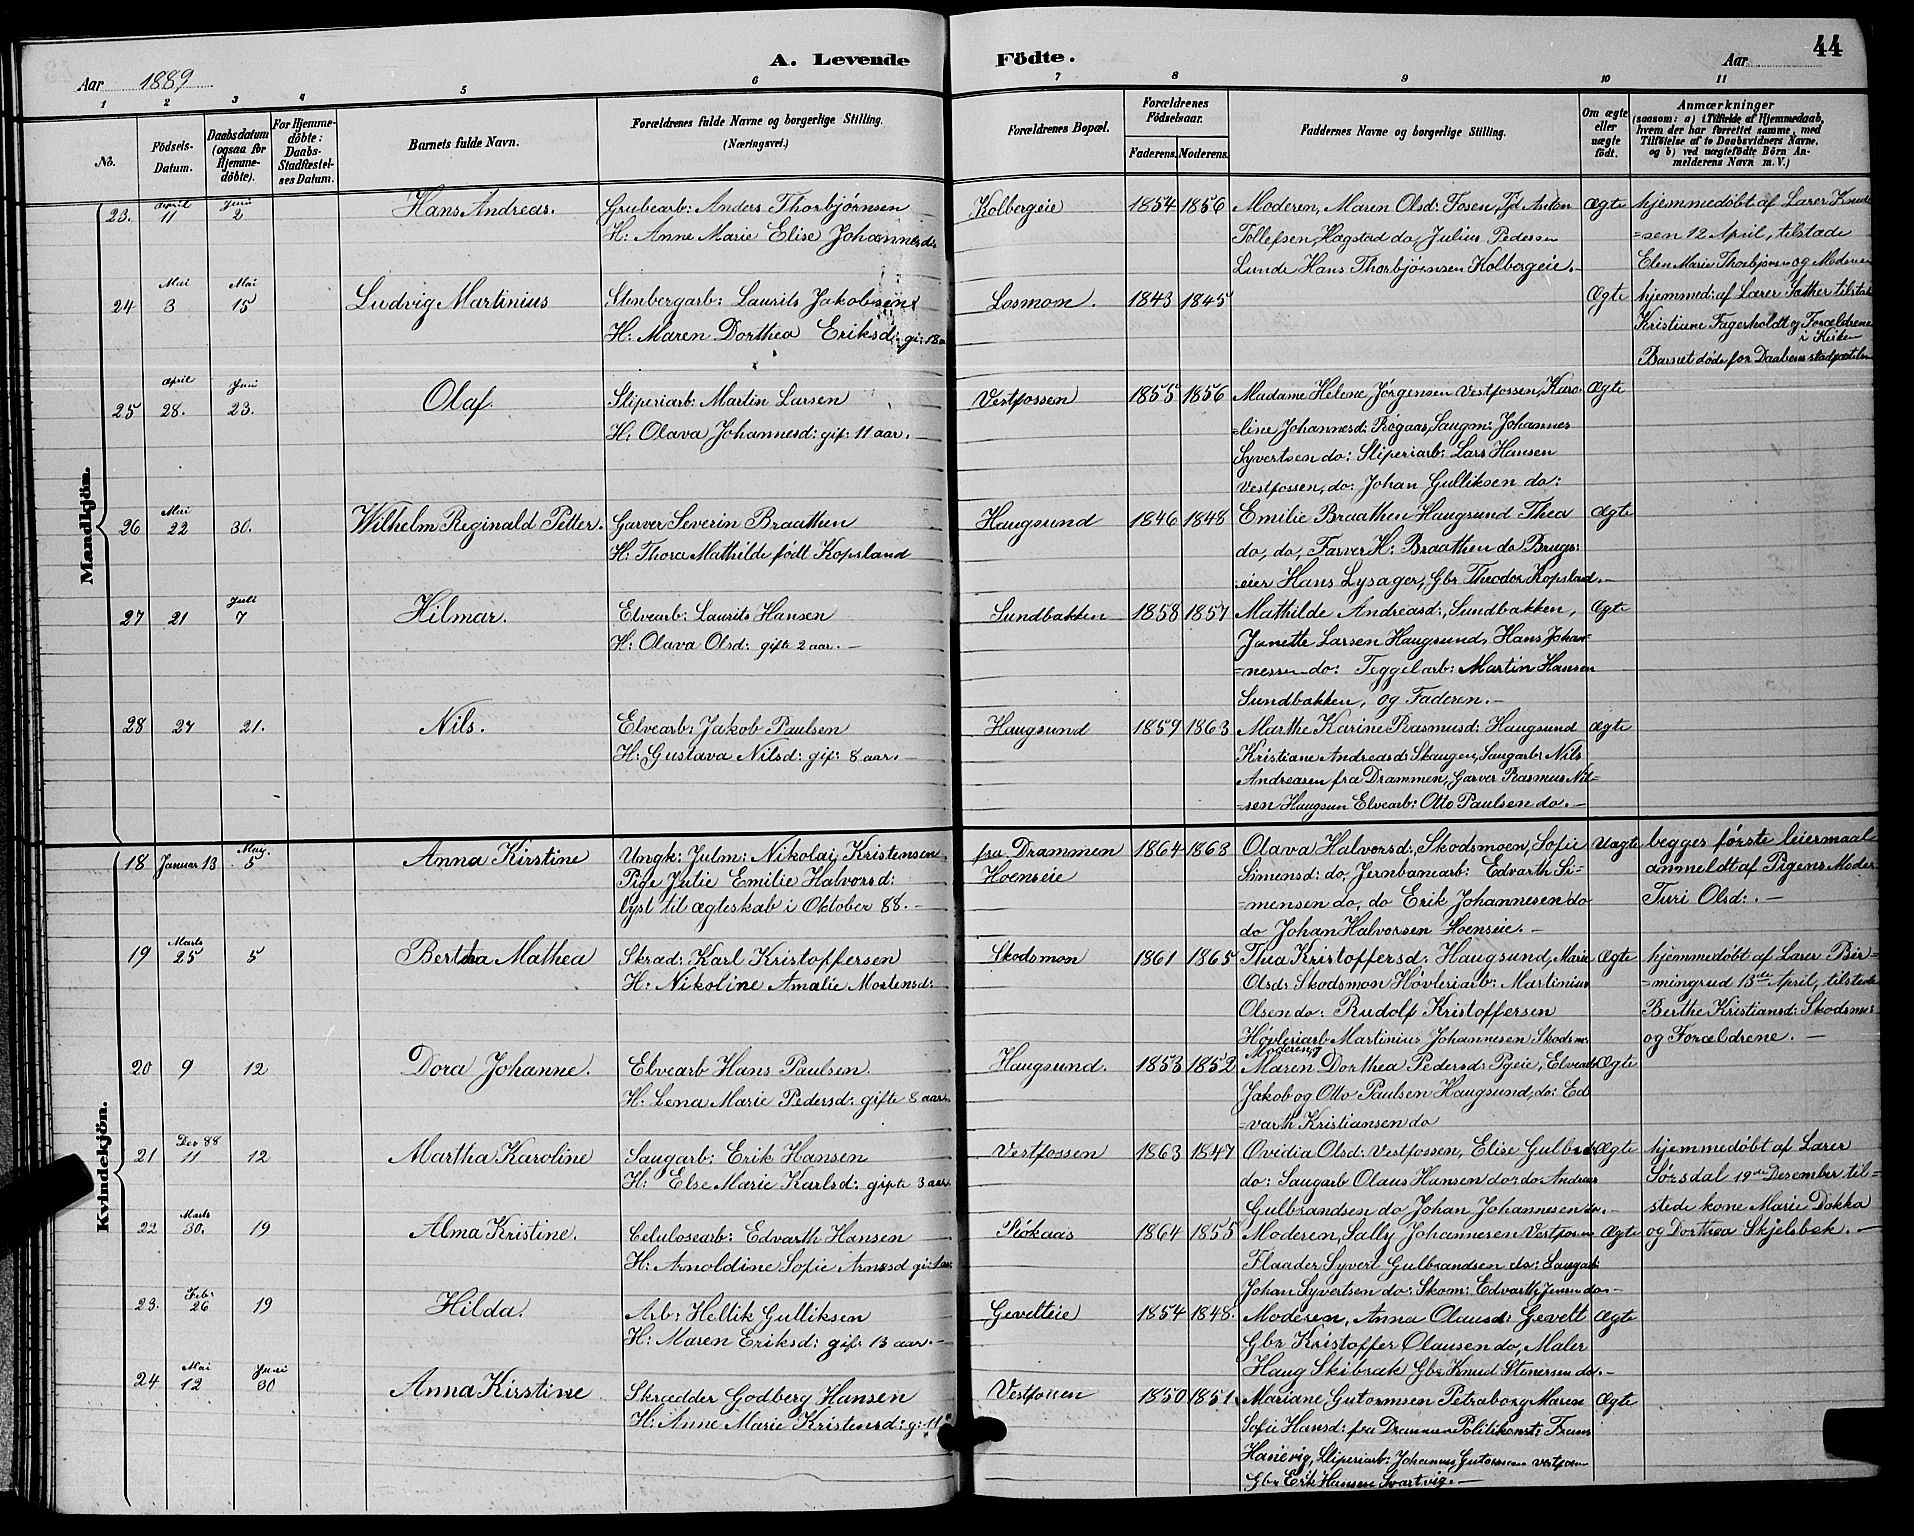 A. Levende Födte.
44
Aar 1889
Aar
1 2 3 4 5 6 7 8 9 10 11
No.
Födsels-Datum.
Daabsdatum (ogsaa for Hjemme-döbte).
For Hjemme-döbte: Daabs-Stadfæstel-ses Datum.
Barnets fulde Navn.
Forældrenes fulde Navne og borgerlige Stilling. (Næringsvei.)
Forældrenes Bopæl.
Forældrenes Födselsaar.
Faderens. Moderens.
Faddernes Navne og borgerlige Stilling.
Om ægte eller uægte födt.
Anmærkninger
(saasom: a) i Tilfælde af Hjemmedaab, hvem der har forrettet samme, med Tilföielse af to Daabsvidners Navne, og b) ved uægtefödte Börn An-melderens Navn m. V.)
Mandkjön.
23. April 11 Juni 2 Hans Andreas. Grubearb: Anders Thorbjørnsen Kolbergeie 1854 1856 Moderen, Maren Olsd: Fosen, Anton Ægte hjemmedøbt af Lærer Knud
H: Anne Marie Elise Johannesd: Tollefsen, Hagstad do, Julius Pedersen =sen 12 April, tilstede
Lunde Hans Thorbjørnsen Kolbergeie. Elen Marie Thorbjørnsen og Moderen
24 Mai 3 Mai 15 Ludvig Martinius Stenbergarb: Laurits Jakobsen Losmon. 1843 1845 Ægte hjemmed: af Lærer Sæther tilstede
H: Maren Dorthea Eriksd: gi: 18 Kristiane Fagerholdt og Forældrene
i Kirken
Barnet døde før Daaben stadfæstedes
25 April 28. Juni 23. Olaf. Sliperiarb: Martin Larsen Vestfossen 1855 1856 Madame Helene Jørgensen Vestfossen, Karo- Ægte
H: Olava Johannesd: gif: 11 aar. =line Johannesd: Røgaas, Saugm: Johannes
Syvertsen do: Sliperiarb: Lars Hansen
Vestfossen, do: Johan Gulliksen do:
26 Mai 22 30. Wilhelm Reginald Petter. Garver Severin Braathen Haugsund 1846 1848 Emilie Braathen Haugsund Thea Ægte
H: Thora Mathilde født Kopsland do, do, Farver H: Braathen do Brugs:
eier Hans Lysager, Gbr Theodor Kopsland.
27 21 Juli 7 Hilmar. Elvearb: Laurits Hansen Sundbakken 1858 1857 Mathilde Andreasd:, Sundbakken, Ægte
H: Olava Olsd: gifte 2 aar. Janette Larsen Haugsund, Hans Johan-
=nessen do: Teggelarb: Martin Hansen
Sundbakken, og Faderen.
28 27 21. Nils. Elvearb: Jakob Paulsen Haugsund 1859 1863 Marthe Karine Rasmusd: Haugsund Ægte
H: Gustava Nilsd: gif: 8 aar. Kristiane Andreasd: Skaugen, Saugarb: Nils
Andreasen fra Drammen, Garver Rasmus Nil=
=sen Haugsun Elvearb: Otto Paulsen do.
Kvindekjön.
18 Januar 13 May. 5 Anna Kirstine Ungk: Julm: Nikolai Kristensen fra Drammen 1864 1863 Olava Halvorsd:, Skodsmoen, Sofie Uægte begges første leiermaal
Pige Julie Emilie Halvorsd: Hoenseie Simensd: do, Jernbanearb: Edvarth Si= anmeldt af Pigens Moder
lyst til ægteskab i Oktober 88. =mensen do, do Erik Johannesen do Turi Olsd:.
do Johan Halvorsen Hoenseie.
19 Marts 25 5 Bertha Mathea Skræd: Karl Kristoffersen Skodsmon 1861 1865 Thea Kristoffersd: Haugsund, Marie Ægte hjemmedøbt af Lærer Bir=
H: Nikoline Amalie Mortensd: Olsd: Skodsmon Høvleriarb: Martinius =mingrud 13de April, tilstede
Olsen do: Rudolf Kristoffersen Berthe Kristiansd: Skodsmo
Høvleriarb Martinius Johannesen Skodsm: og Forældrene.
20 9 12 Dora Johanne. Elvearb Hans Paulsen Haugsund. 1853 1852 Moderen og Maren Dorthea Pedersd: Elvearb: Ægte
H: Lena Marie Pedersd: gifte 8 aar. Jakob og Otto Paulsen Haugsund, do: Ed
=varth Kristiansen do
21 Des 88 11 12 Martha Karoline Saugarb: Erik Hansen Vestfossen 1863 1847 Ovidia Olsd: Vestfossen, Elise Gulbrd: Ægte hjemmedøbt af Lærer
H: Else Marie Karlsd: gifte 3 aar do: Saugarb Olaus Hansen do: do Andreas Sørsdal 19de Desember til=
Gulbrandsen do Johan Johannesen do. stede kone Marie Dokka
22 Marts 30. 19 Alma Kristine. Celulosearb: Edvarth Hansen Røkaas 1864 1855 Moderen, Sally Johannesen Vestfossen Ægte og Dorthea Skjelsbek.
H: Arnoldine Sofie Arnesd gi: 1 aar Flaader Syvert Gulbrandsen do: Saugarb:
Johan Syvertsen do: Skom: Edvarth Jensen do
23. Febr 26 19 Hilda. Arb: Hellik Gulliksen Gevelteie 1854 1848. Moderen, Anna Olausd: Gevelt Ægte
H: Maren Eriksd: gif: 13 aar. Gbr Kristoffer Olausen do, Maler
Haug Skibrak Gbr Knud Stenersen do.
24 Mai 12 Juni 30 Anna Kirstine Skrædder Godberg Hansen Vestfossen 1850 1851. Mariane Gutormsen Petraborg Maren Ægte
H: Anne Marie Kristensd: g: 11 Sofie Hansd: fra Drammen Politikonst: Frans
Hanevig, Sliperiarb: Johannes Gutormsen Vestfosn
Gbr Erik Hansen Svartvig.